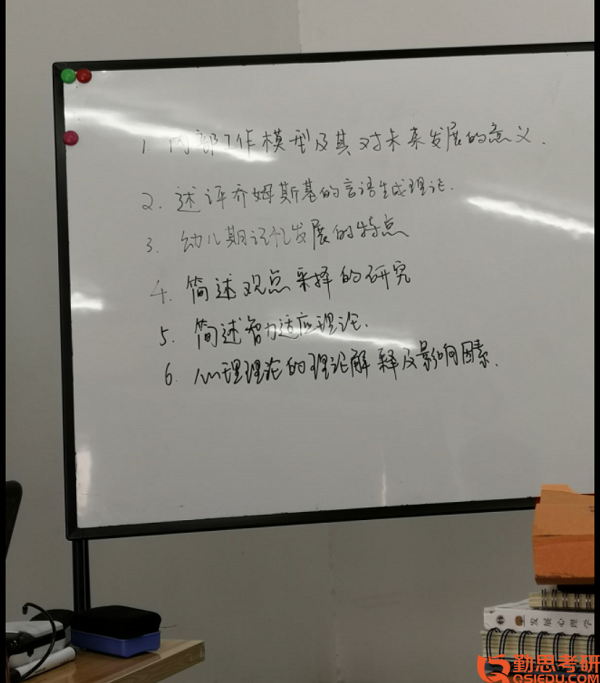 1 内部工作模型及其对未来发展的意义.
2. 述评乔姆斯基的言语生成理论.
3. 幼儿期记忆发展的特点
4. 简述观点采择的研究
5. 简述智力适应理论.
6. 心理理论的理论解释及影响因素.
发展心理学
勤思考研
QSIEDU.COM